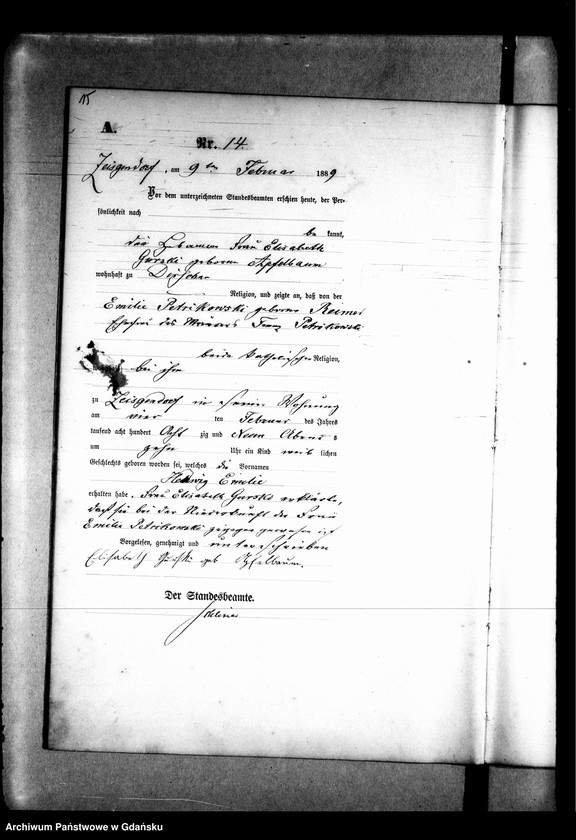 15
A.
Nr. 14.
Zeisgendorf, am 9ten Februar 1889
Vor dem unterzeichneten Standesbeamten erschien heute, der Per-
sönlichkeit nach
be kannt,
die Hebamme Frau Elisabeth
Gurski geborene Apfelbaum
wohnhaft zu Dirschau
Religion, und zeigte an, daß von der
Emilie Petrikowski geborene Reimer
Ehefrau des Maurers Franz Petrikowski
beide katholischer Religion,
bei ihm
zu Zeisgendorf in seiner Wohnung
am vier ten Februar des Jahres
tausend acht hundert Acht zig und Neun Abends
um zehn Uhr ein Kind weib lichen
Geschlechts geboren worden sei, welches die Vornamen
Hedwig Emilie
erhalten habe. Frau Elisabeth Gurski erklärte,
daß sie bei der Niederkunft der Frau
Emilie Petrikowski zugegen gewesen ist
Vorgelesen, genehmigt und unterschrieben
Elisabeth Gurski geb Apfelbaum.
Der Standesbeamte.
Archiwum Państwowe w Gdańsku